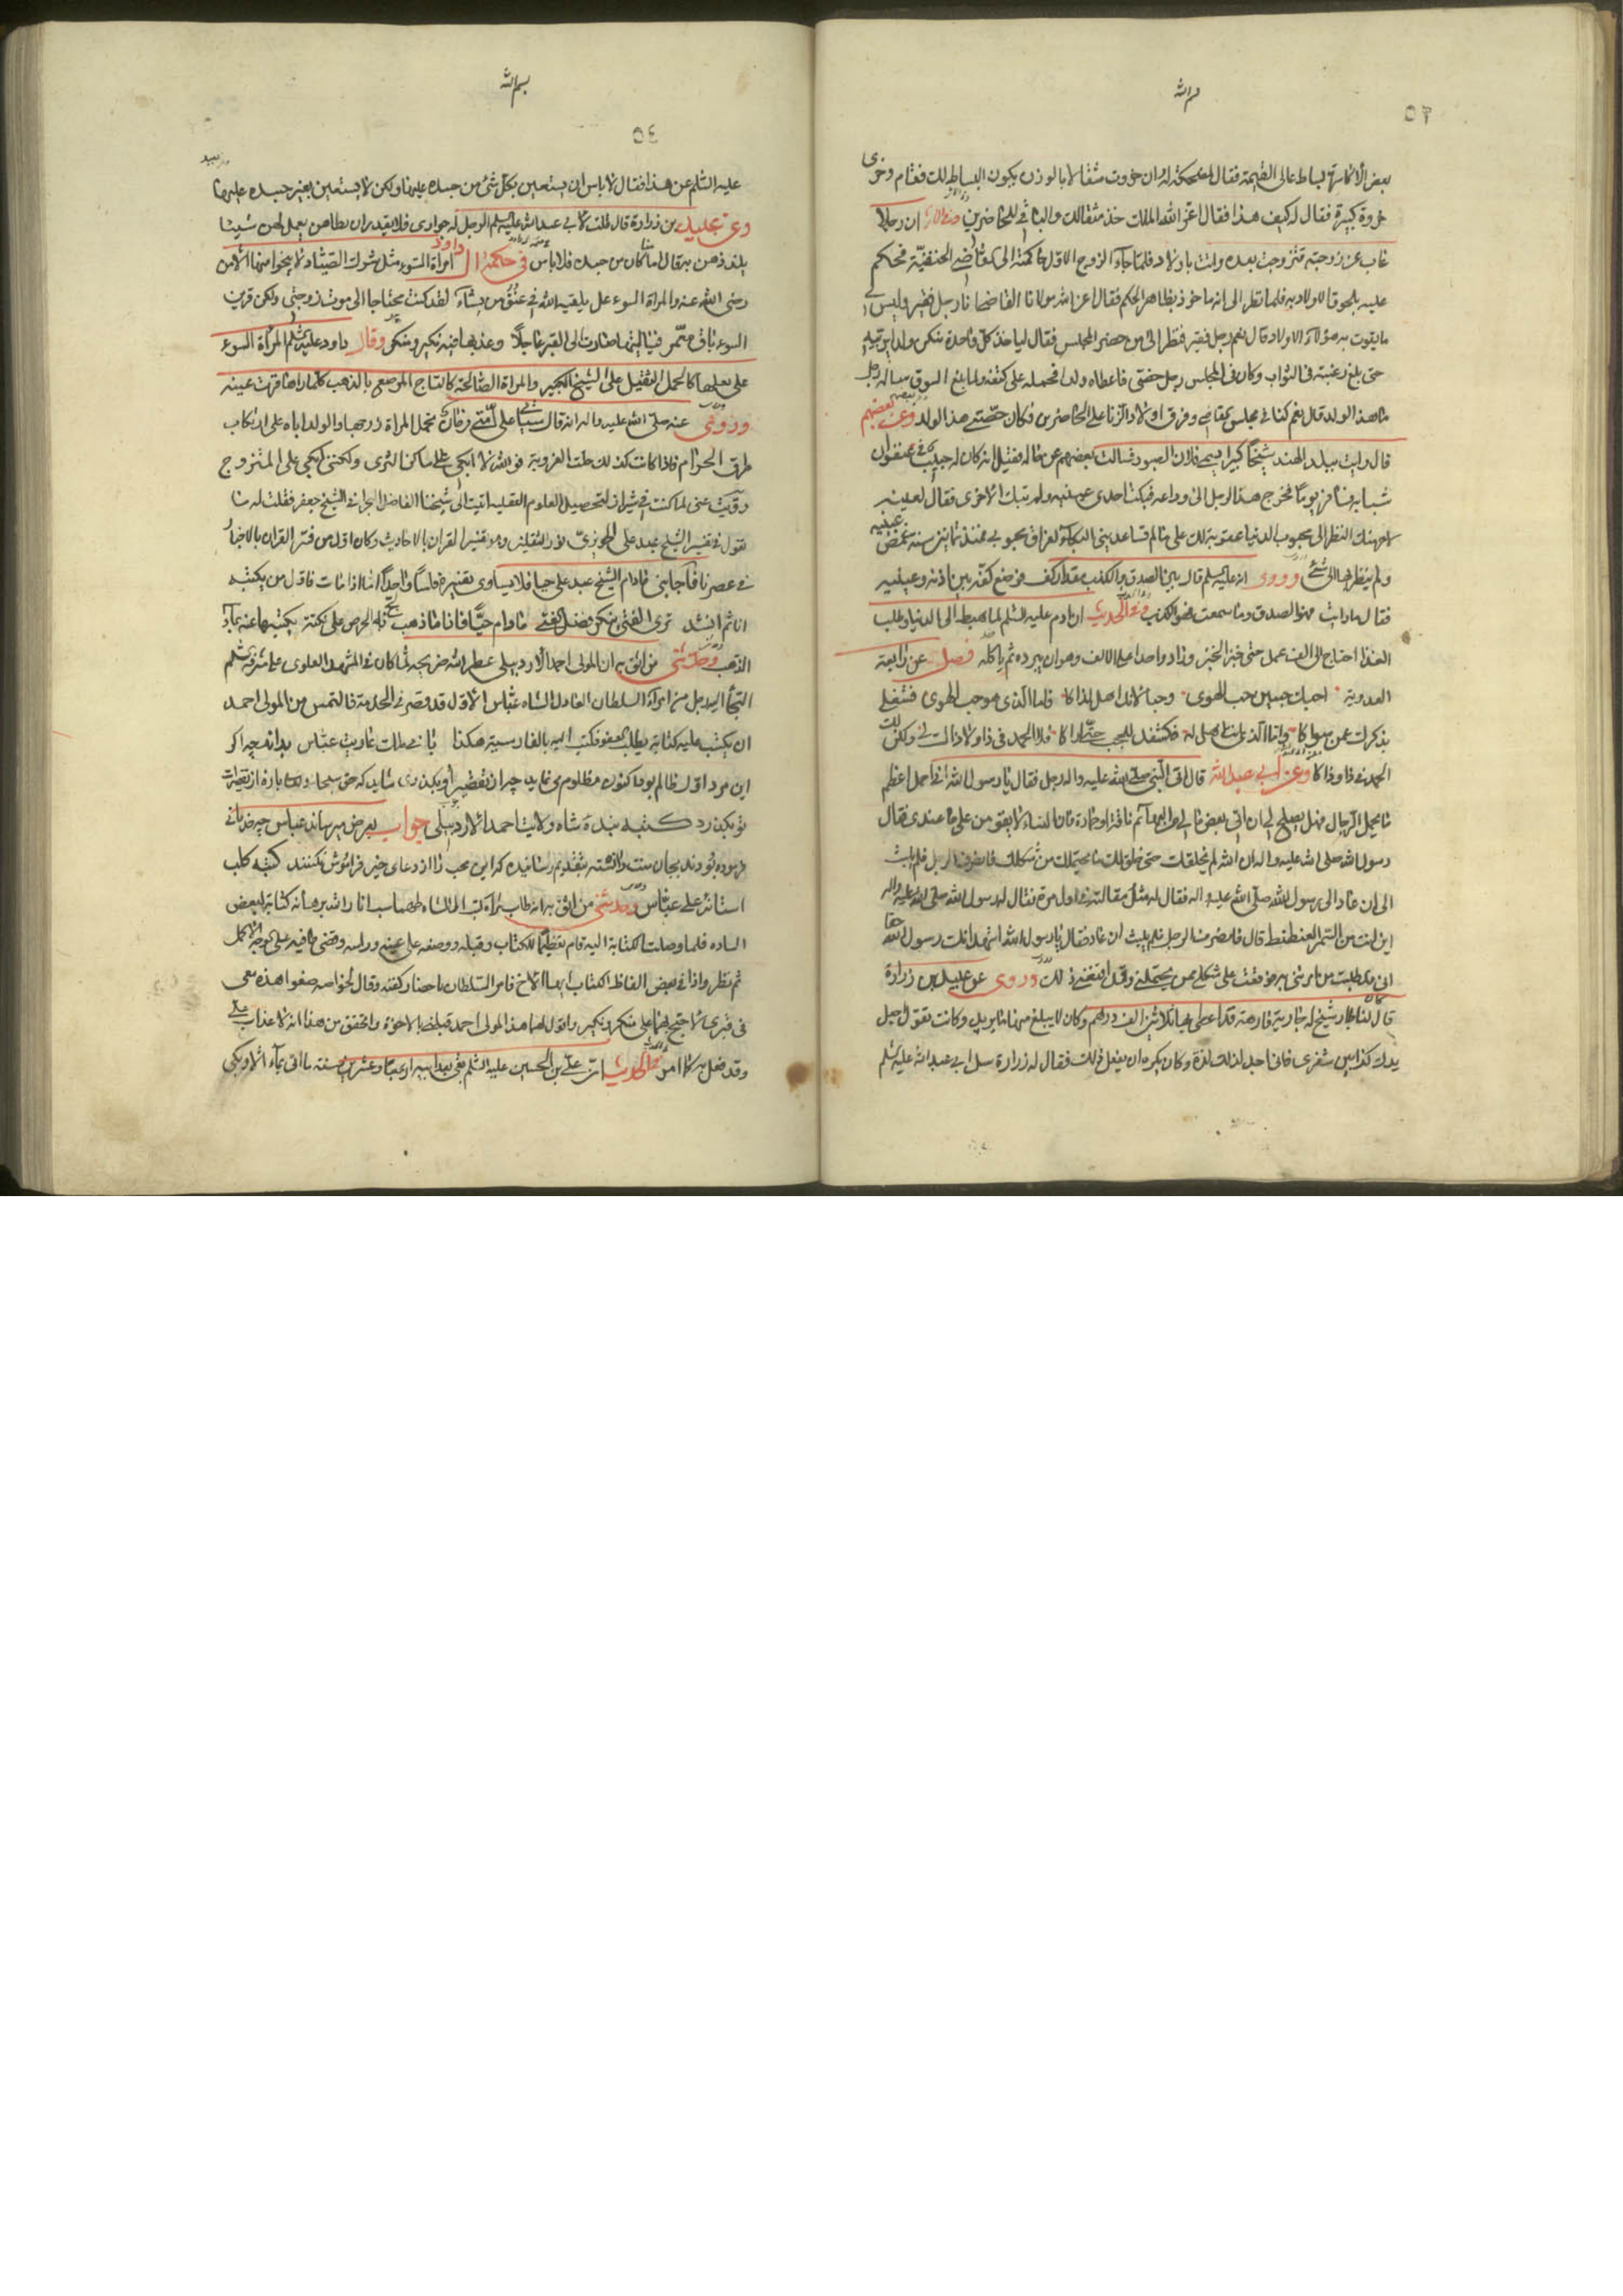 بسم الله
٥٣
بعض الأكاسرة بساط عالى القيمة فقال لمضحكته ان خروت مثقالا بالوزن يكون البساط لك فقام وخرى
خروة كبيرة فقال له كيف هذا فقال اعز الله الملك خذ مثقالك والباقي للحاضرين ان رجلا
غاب عن زوجته فتزوجت بعده واتت باولاد فلما جاء الزوج الاول حاكمته الى قاضي الحنفيّة فحكم
عليه بلحوق الاولاد به فلما نظر الى انه ماخوذ بظاهر الحكم فقال اعز الله مولانا القاضي انا رجل فقير وليس لي
ما يقوت به هؤلاء الاولاد قال نعم رجل فقير فنظر الى من حضر المجلس فقال لياخذ كل واحد منكم ولدا
حتى بلغ رغبته في الثواب وكان في المجلس رجل حنفي فاعطاه ولدا فحمله على كتفه ولما بلغ السوق ساله رجل
ما هذا الولد قال نعم كنا في مجلس القاضي وفرق اولاد الزنا على الحاضرين فكان حصّتي هذا الولد وعن بعضهم
قال رايت ببلد الهند شيخا كبيرا يسمى فلان الصبور فسالت بعضهم عن حاله فقيل انه كان له حبيب في عنفوان
شبابه فسافر يوما فخرج هذا الرجل الى وداعه فبكت احدى عينيه ولم تبك الاخرى فقال لعينه
لاحرمنك النظر الى محبوب الدنيا عقوبة لك على ما لم تساعديني البكاء لفراق محبوبي فمنذ ثمانين سنة غمض عينيه
ولم ينظر بها الى شئ وروى انه عليه السلم قال بين الصدق والكذب مقدار كف فوضع كفه بين اذنه وعينيه
فقال ما رايت فهو الصدق وما سمعت فهو الكذب وفي الحديث ان ادم عليه السلم لما هبط الى الدنيا وطلب
الغذا احتاج الى الف عمل حتى خبز الخبز وزاد واحدا على الالف وهو ان يبرده ثم ياكله فصل عن رابعة
العدوية احبك حبين حب الهوى وحبا لانك اهل لذاكا فاما الذى هو حب الهوى فشغلى
بذكرك عمن سواكا واما الذى انت اهل له فكشفك للحجب حتى اراكا فلا الحمد فى ذا ولا ذاك لى ولكن لك
الحمد فى ذا وذاكا وعن ابي عبد الله قال اتى النبي صلى الله عليه واله رجل فقال يا رسول الله اني احمل اعظم
ما يحمل الرجال فهل يصلح لي ان اتى بعض ما لي من البهائم ناقة او حمارة فان النساء لا يقوين على ما عندى فقال
رسول الله صلى الله عليه واله ان الله لم يخلقك حتى خلق لك ما يحتملك من شكلك فانصرف الرجل فلم يلبث
الى ان عاد الى رسول الله صلى الله عليه واله فقال له مثل مقالته في اول مرة فقال له رسول الله صلى الله عليه واله
اين انت من السمر العنطنط قال فانصرف الرجل فلم يلبث ان عاد فقال يا رسول الله اشهد انك رسول الله حقا
انى طلبت من امرتنى به فوقعت على شكلى ممن يحتملني وقد اقنعني ذلك وروى عن عبيد بن زرارة
قال كان لنا جار شيخ له جارية فارهة قد اعطى بها ثلاثين الف درهم وكان لا يبلغ منها ما يريد وكانت تقول اجعل
يدك كذا بين شفرى فانى اجد لذلك لذة وكان يكره ان يفعل ذلك فقال لزرارة سل ابي عبد الله عليه السلم
بسم الله
٥٤
عليه السلم عن هذا فقال لا باس ان يستعين بكل شئ من جسده عليها ولكن لا يستعين بغير جسده عليها
وعن عبيد بن زرارة قال قلت لابي عبد الله عليه السلم الرجل له جوارى فلا يقدر ان يطاهن يعمل لهن شيئا
يلذذهن به قال اما ما كان من جسده فلا باس في حكمة ال داود امراة السوء مثل شرك الصياد لا ينجو منها الا من
رضى الله عنه والمراة السوء غل يلقيه الله في عنق من يشاء لقد كنت محتاجا الى موت زوجتى ولكن قرين
السوء باق معمر فيا ليتها صارت الى القبر عاجلا وعذبها فيه نكير ومنكر وقال داود عليه السلم المراة السوء
على بعلها كالحمل الثقيل على الشيخ الكبير والمراة الصالحة كالتاج المرصع بالذهب كلما راها قرت عينه
وروى عنه صلى الله عليه واله انه قال سياتى على امتى زمان تحمل المراة زوجها والولد اباه على ارتكاب
طرق الحرام فاذا كانت كذلك حلت العزوبة فوالله لا ابكى على ساكن الثرى ولكننى ابكى على المتزوج
عنى لما كنت في شيراز لتحصيل العلوم العقليه اتيت الى شيخنا الفاضل البحراني الشيخ جعفر فقلت له ما
تقول في تفسير الشيخ عبد على الحويزى نور الثقلين وهو تفسير القران بالاحاديث وكان اول من فسر القران بالاخبار
في عصرنا فاجابنى ما دام الشيخ عبد على حيا فلا يساوى تفسيره فلسا واحدا اما اذا مات فاول من يكتبه
انا ثم انشد ترى الفتى ينكر فضل الفتى ما دام حيا فاذا ما ذهب لج به الحرص على نكتة يكتبها عنه بماء
الذهب وحدثنى من اثق به ان المولى احمد الاردبيلى عطر الله ضريحه لما كان في المشهد العلوى على مشرفه السلم
التجأ اليه رجل من امراء السلطان العادل الشاه عباس الاول قد قصر فى الخدمة فالتمس من المولى احمد
ان يكتب عليه كتابة يطلب العفو فكتب اليه بالفارسية هكذا بانى ملك عاريت عباس بداند چه اكر
اين مرد اول ظالم بود اكنون مظلوم مى نمايد چه از تقصير او بگذرى شايد كه حق سبحانه وتعالى پاره از تقصيرات
تو بگذرد كتبه بنده شاه ولايت احمد الاردبيلى جواب بعرض ميرساند عباس چه خدماتى
فرموده بودند بجان منت داشته بتقديم رسانيده كه اين محب را از دعاى خير فراموش نكنند كتبه كلب
استانه على عباس وحدثنى من اثق به انه طاب ثراه كتب الى الشاه طهماسب انار الله برهانه كتابة لبعض
الساده فلما وصلت الكتابة اليه قام تعظيما للكتاب وقبله ووضعه على عينيه وراسه وقضى ما فيه على الوجه الاكمل
ثم نظر واذا في بعض الفاظ الكتاب ايها الاخ فامر السلطان باحضار كفنه وقال لخواصه ضعوا هذه معى
فى قبرى لاحتج بها على منكر ونكير واقول لهما هذا المولى احمد قبلنى بالاخوة واتحقق من هذا انه لا عذاب على
وقد فعل به كما امر في الحديث ان علي بن الحسين عليه السلم بقى بعد ابيه اربعا وعشرين سنة ما اتى بماء الا وبكى